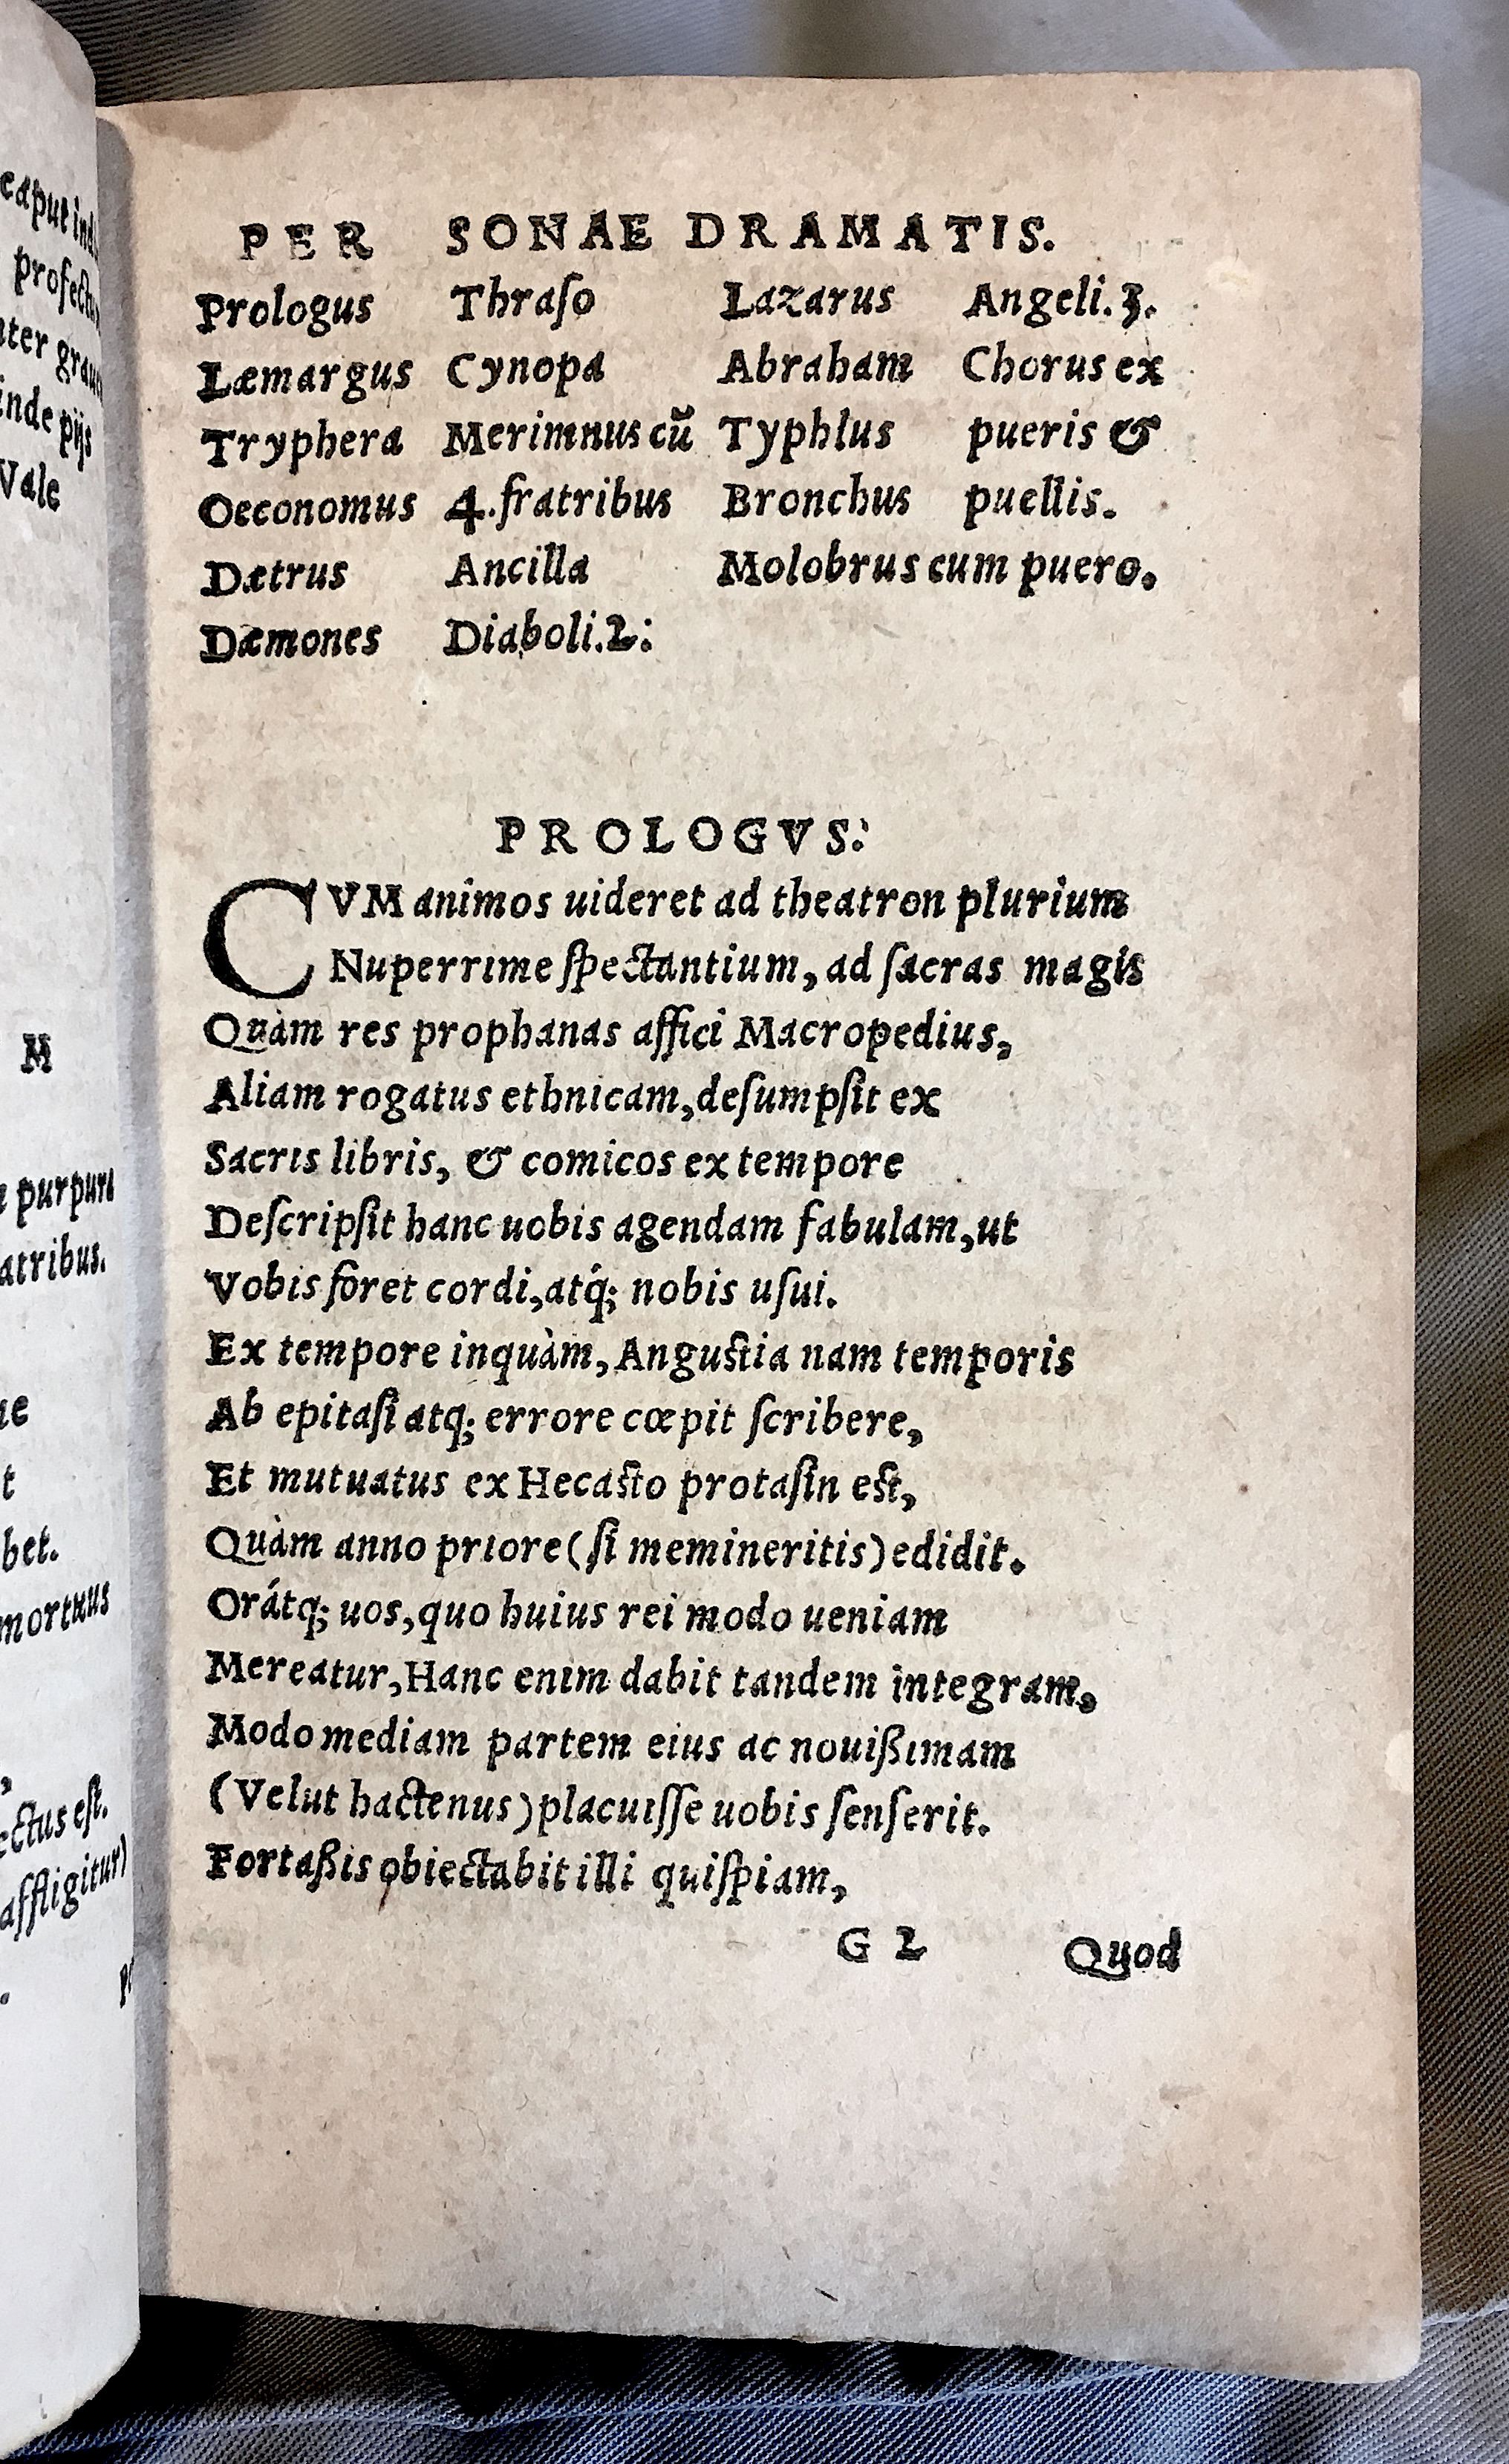 caput
profectu
inde pijs
Vale
M
purpura
atribus.
bet.
mortuus
ectus est.
affligitur)
PER SONAE DRAMATIS.
Prologus Thraſo Lazarus Angeli.3.
Læmargus Cynopa Abraham Chorus ex
Tryphera Merimnus cū Typhlus pueris &
Oeconomus 4.fratribus Bronchus puellis.
Dætrus Ancilla Molobrus cum puero.
Dæmones Diaboli.2:
PROLOGVS:
CVM animos uideret ad theatron plurium
Nuperrime ſpectantium, ad ſacras magis
Quàm res prophanas affici Macropedius,
Aliam rogatus ethnicam, deſumpſit ex
Sacris libris, & comicos ex tempore
Deſcripſit hanc uobis agendam fabulam, ut
Vobis foret cordi, atq́; nobis uſui.
Ex tempore inquàm, Anguſtia nam temporis
Ab epitaſi atq; errore cœpit ſcribere,
Et mutuatus ex Hecaſto protaſin eſt,
Quàm anno priore (ſi memineritis) edidit.
Orátq; uos, quo huius rei modo ueniam
Mereatur, Hanc enim dabit tandem integram,
Modo mediam partem eius ac nouißimam
(Velut hactenus) placuiſſe uobis ſenſerit.
Fortaßis obiectabit illi quiſpiam,
G 2 Quod